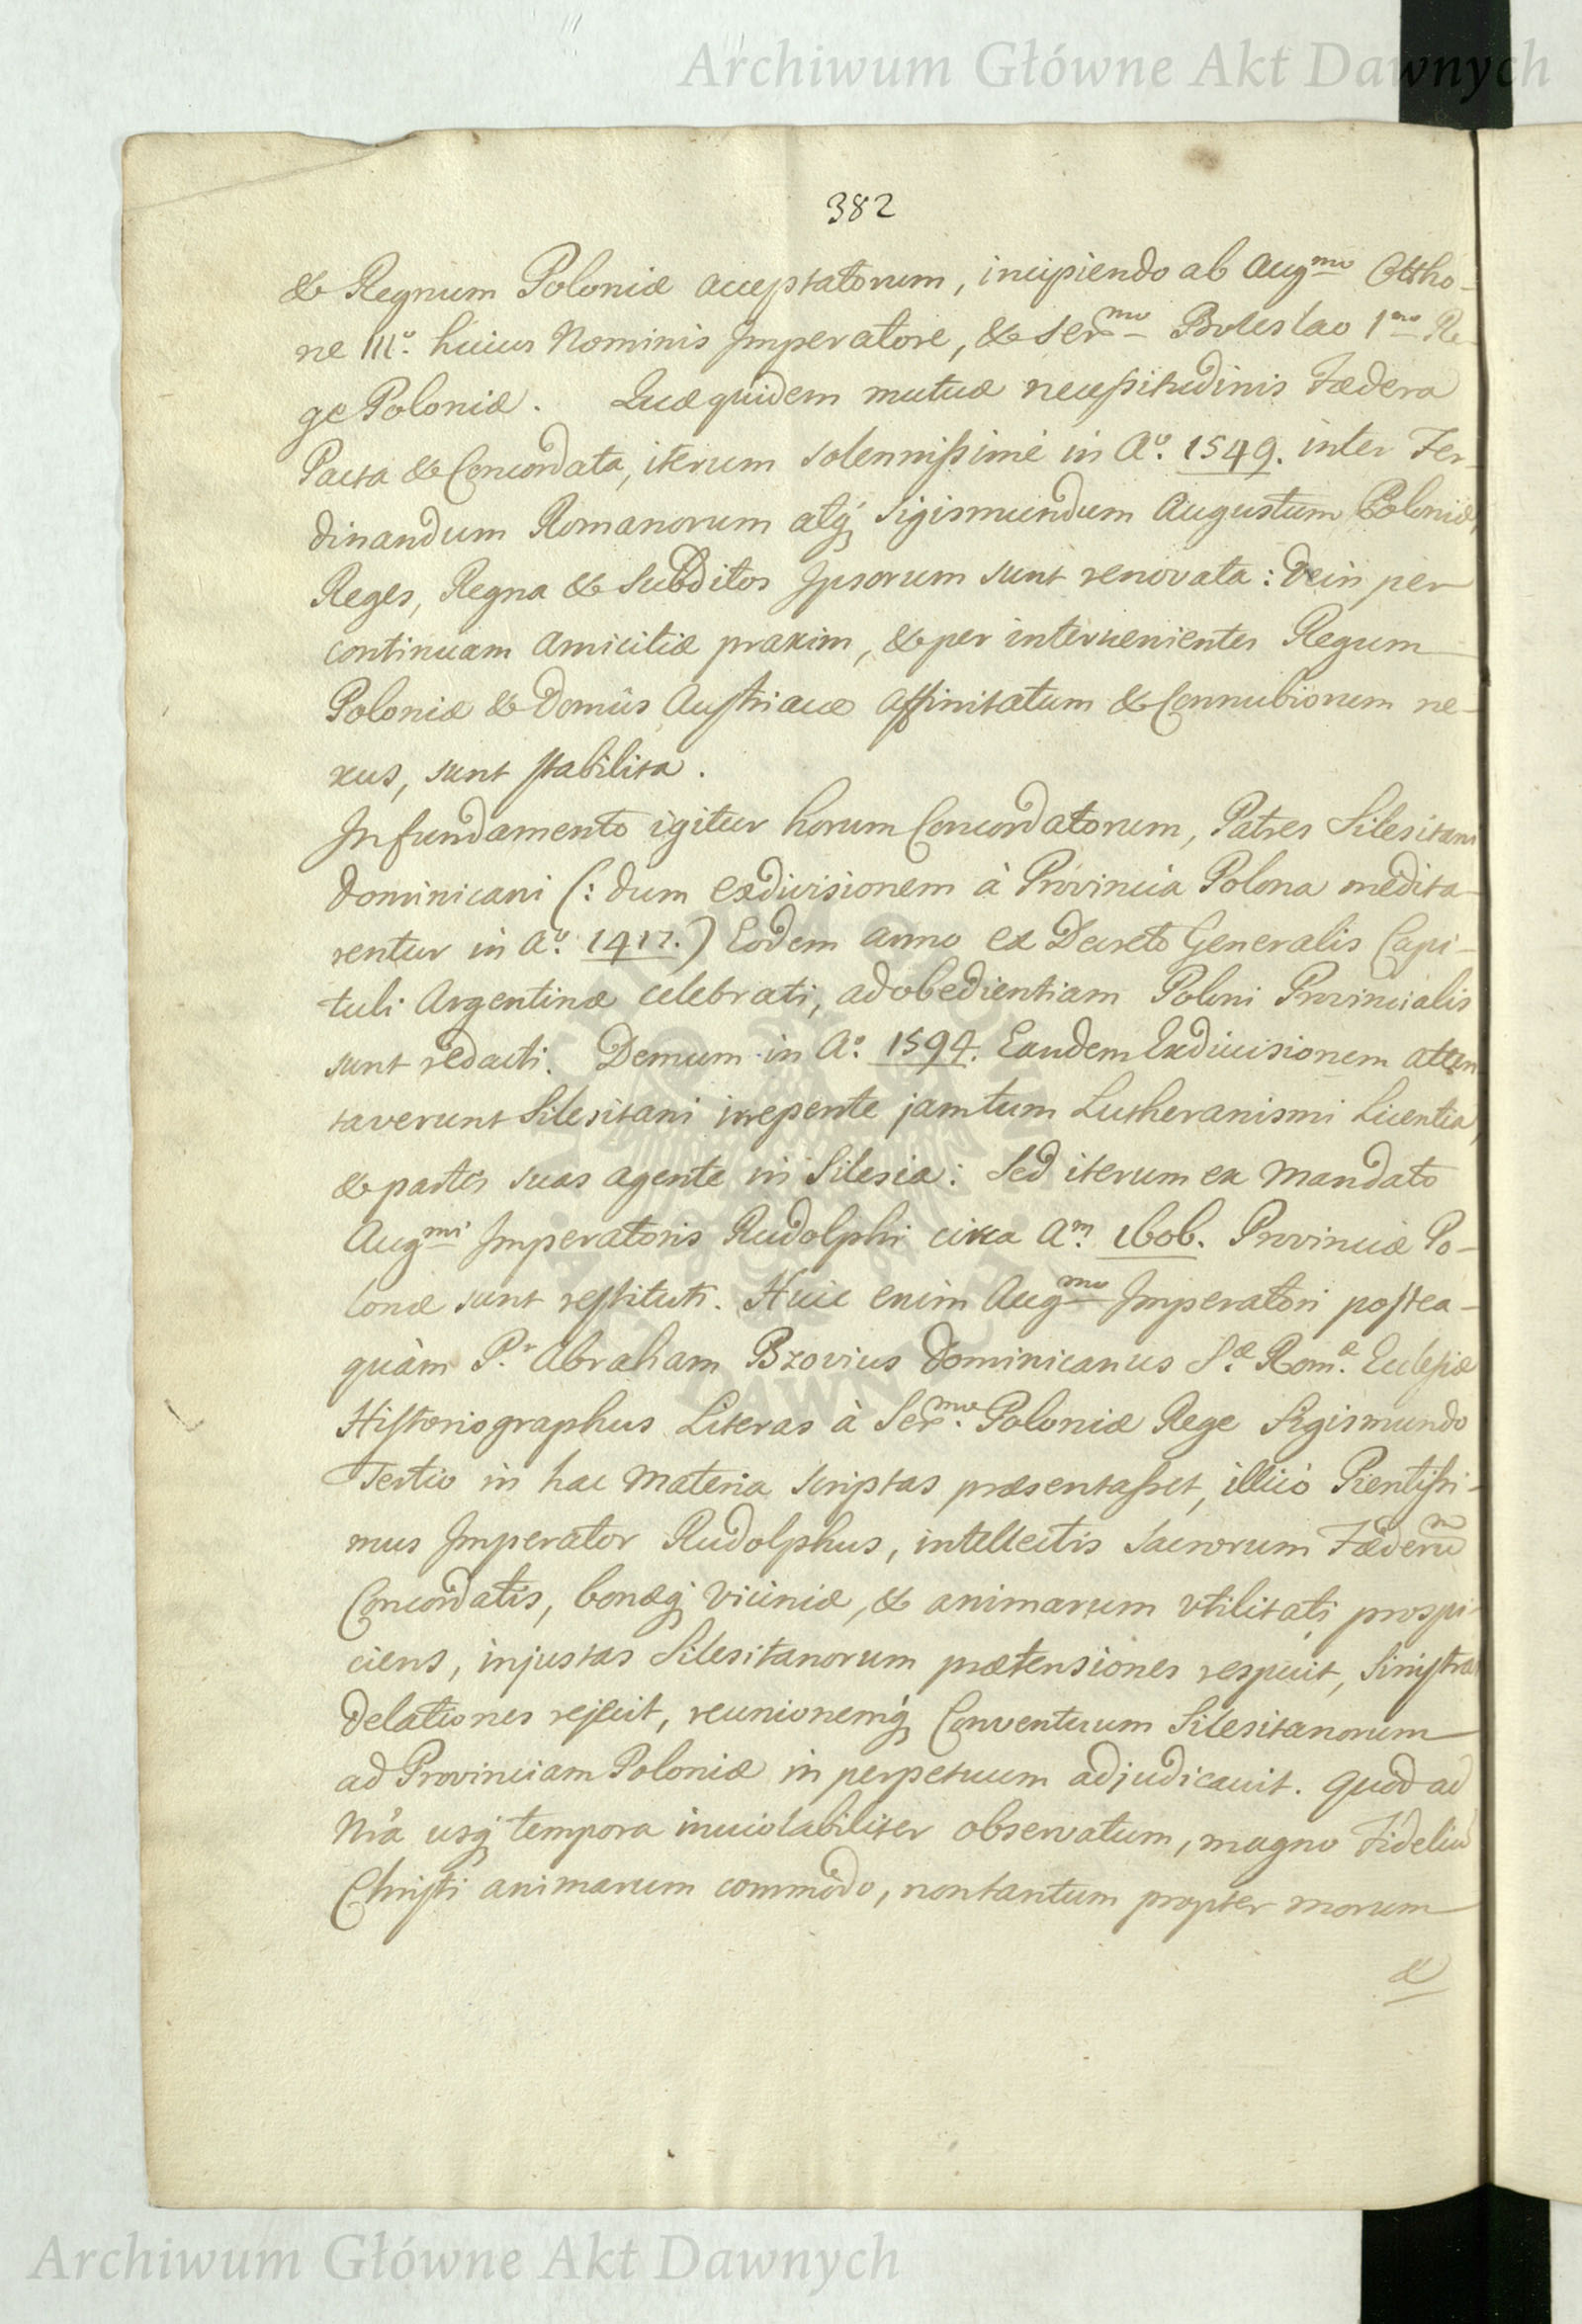 Archiwum Główne Akt Dawnych
382
& Regnum Poloniæ acceptatorum, incipiendo ab Aug^mo Ottho-
ne III^o. huius Nominis Imperatore, & Ser^mo Boleslao 1^mo Re-
ge Poloniæ. Quæquidem mutuæ necessitudinis Fædera
Pacta & Concordata, iterum solennissimè in A^o. 1549. inter Fer-
dinandum Romanorum atq; Sigismundum Augustum Poloniæ,
Reges, Regna & Subditos Ipsorum sunt renovata: Dein per
continuam Amicitiæ praxim, & per intervenientes Regum
Poloniæ & Domûs Austriacæ Affinitatum & Connubiorum ne-
xus, sunt stabilita.
In fundamento igitur horum Concordatorum, Patres Silesitani
Dominicani (: dum exdivisionem à Provincia Polona medita-
rentur in A^o. 1417.) Eodem anno ex Decreto Generalis Capi-
tuli Argentinæ celebrati, ad obedientiam Poloni Provincialis
sunt redacti. Demum in A^o. 1594. Eandem Exdiuisionem atten
taverunt Silesitani irrepente jam tum Lutheranismi Licentia,
& partes suas agente in Silesia: Sed iterum ex Mandato
Aug^mi Imperatoris Rudolphi circa A^m. 1606. Provinciæ Po-
lonæ sunt restituti. Huic enim Aug^mo Imperatori postea-
quàm P.^r Abraham Bzovius Dominicanus S.^æ Rom.^æ Ecclesiæ
Historiographus Literas à Ser^mo. Poloniæ Rege Sigismundo
Tertio in hac Materia scriptas præsentasset, illicò Pientissi-
mus Imperator Rudolphus, intellectis Sacrorum Fæderu^m
Concordatis, bonæq; viciniæ, & animarum vtilitati prospi-
ciens, injustas Silesitanorum prætensiones respuit, Sinistras
delationes rejecit, reunionemq; Conventuum Silesitanorum
ad Provinciam Poloniæ in perpetuum adjudicauit. Quod ad
nr̃a usq; tempora inuiolabiliter observatum, magno Fideliũ
Christi animarum commodo, non tantum propter morum
&
Archiwum Główne Akt Dawnych